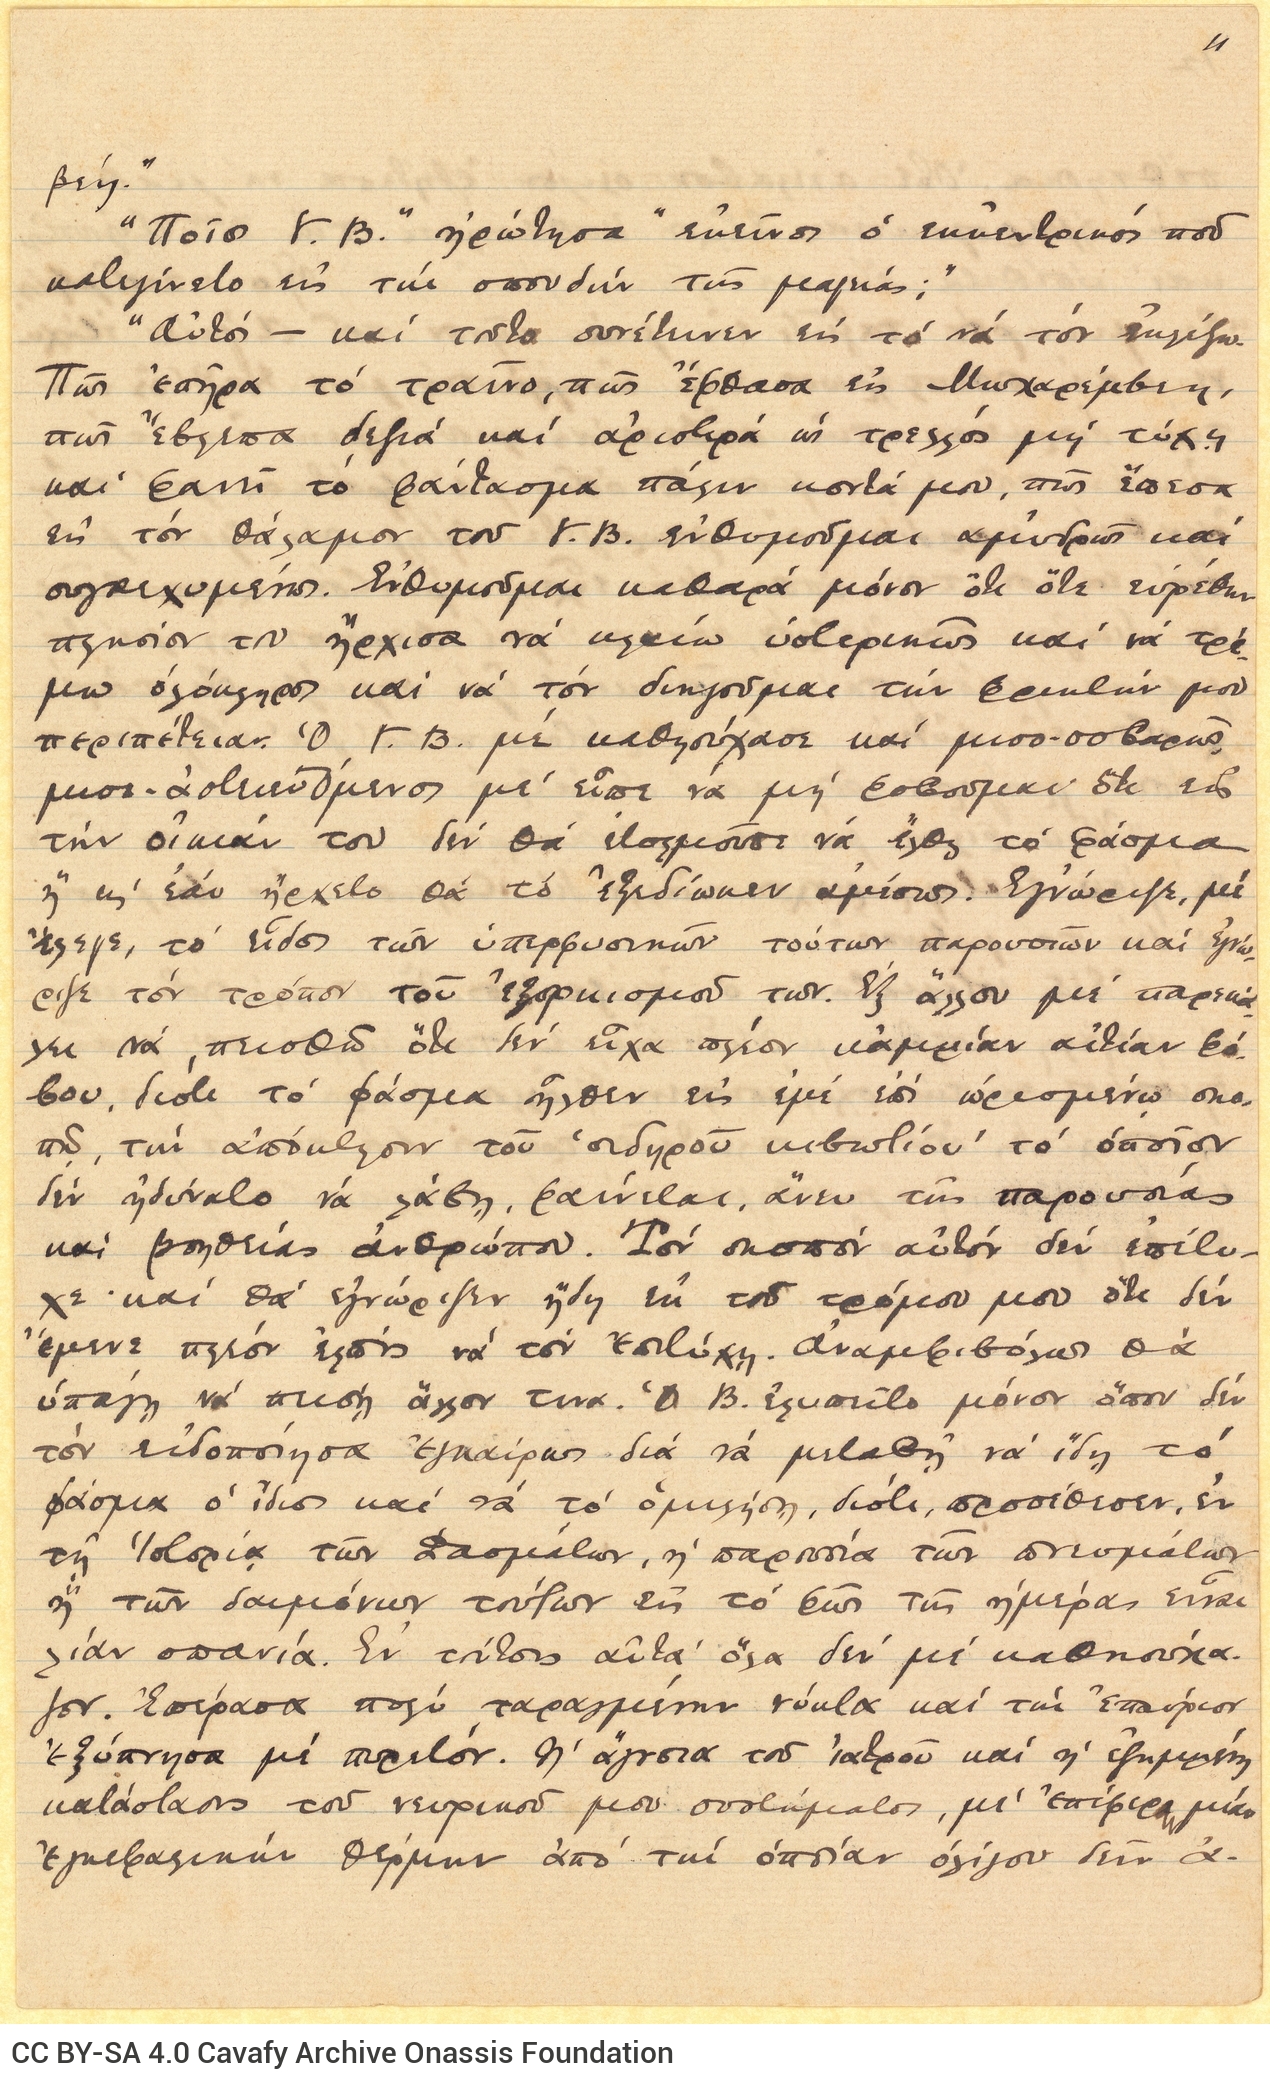 11
βέη."
"Ποῖος Γ. Β." ἠρώτησα "ἐκεῖνος ὁ ἐκκεντρικός ποῦ
κατεγίνετο εἰς τήν σπουδήν τῆς μαγείας;"
"Αὐτός — καί τοῦτο συνέτεινεν εἰς τό νά τόν ἐκλέξω.
Πῶς ἐπῆρα τό τραῖνο, πῶς ἔφθασα εἰς Μωχαρέμβεη,
πῶς ἔβλεπα δεξιά καί ἀριστερά ὡς τρελλός μή τύχῃ
καί φανῇ τό φάντασμα πάλιν κοντά μου, πῶς ἔπεσα
εἰς τόν θάλαμον τοῦ Γ. Β. ἐνθυμοῦμαι ἀμυδρῶς καί
συγκεχυμένως. Ἐνθυμοῦμαι καθαρά μόνον ὅτι ὅτε εὑρέθην
πλησίον του ἤρχισα νά κλαίω ὑστερικῶς καί νά τρέ-
μω ὁλόκληρος καί νά τόν διηγοῦμαι τήν φρικτήν μου
περιπέτειαν. Ὁ Γ. Β. μέ καθησύχασε καί μισο-σοβαρῶς,
μισο-ἀστειευόμενος μέ εἶπε νά μή φοβοῦμαι ὅτι εἰς
τήν οἰκίαν του δέν θά ἐτολμοῦσε νά ἔλθῃ τό φάσμα
ἤ κι' ἐάν ἤρχετο θά τό ἐξεδίωκεν ἀμέσως. Ἐγνώριζε, μέ
ἔλεγε, τό εἶδος τῶν ὑπερφυσικῶν τούτων παρουσιῶν καί ἐγνώ-
ριζε τόν τρόπον τοῦ ἐξορκισμοῦ των. Ἐξ ἄλλου μέ παρεκά-
λει νά πεισθῶ ὅτι δέν εἶχα πλέον κἀμμίαν αἰτίαν φό-
βου, διότι τό φάσμα ἦλθεν εἰς ἐμέ ἐπί ὡρισμένῳ σκο-
πῷ, τήν ἀπόκτησιν τοῦ 'σιδηροῦ κιβωτίου' τό ὁποῖον
δέν ἠδύνατο νά λάβῃ, φαίνεται, ἄνευ τῆς παρουσίας
καί βοηθείας ἀνθρώπου. Τόν σκοπόν αὐτόν δέν ἐπέτυ-
χε· καί θά ἐγνώριζεν ἤδη ἐκ τοῦ τρόμου μου ὅτι δέν
ἔμενε πλέον ἐλπίς νά τόν ἐπιτύχῃ. Ἀναμφιβόλως θά
ὑπάγῃ νά πείσῃ ἄλλον τινα. Ὁ Β. ἐλυπεῖτο μόνον ὅπου δέν
τόν εἰδοποίησα ἐγκαίρως διά νά μεταβῇ νά ἴδῃ τό
φάσμα ὁ ἴδιος καί νά τό ὁμιλήσῃ, διότι, προσέθεσεν, ἐν
τῇ Ἱστορίᾳ τῶν Φασμάτων, ἡ παρουσία τῶν πνευμάτων
ἤ τῶν δαιμόνων τούτων εἰς τό φῶς τῆς ἡμέρας εἶναι
λίαν σπανία. Ἐν τούτοις αὐτά ὅλα δέν μέ καθησύχα-
ζον. Ἐπέρασα πολύ ταραγμένην νύκτα καί τήν ἐπαύριον
ἐξύπνησα μέ πυρετόν. Ἡ ἄγνοια τοῦ ἰατροῦ καί ἡ ἐξημμένη
κατάστασις τοῦ νευρικοῦ μου συστήματος, μέ ἐπέφερα, μίαν
ἐγκεφαλικήν θέρμην ἀπό τήν ὁποίαν ὀλίγου δεῖν ἀ-
CC BY-SA 4.0 Cavafy Archive Onassis Foundation